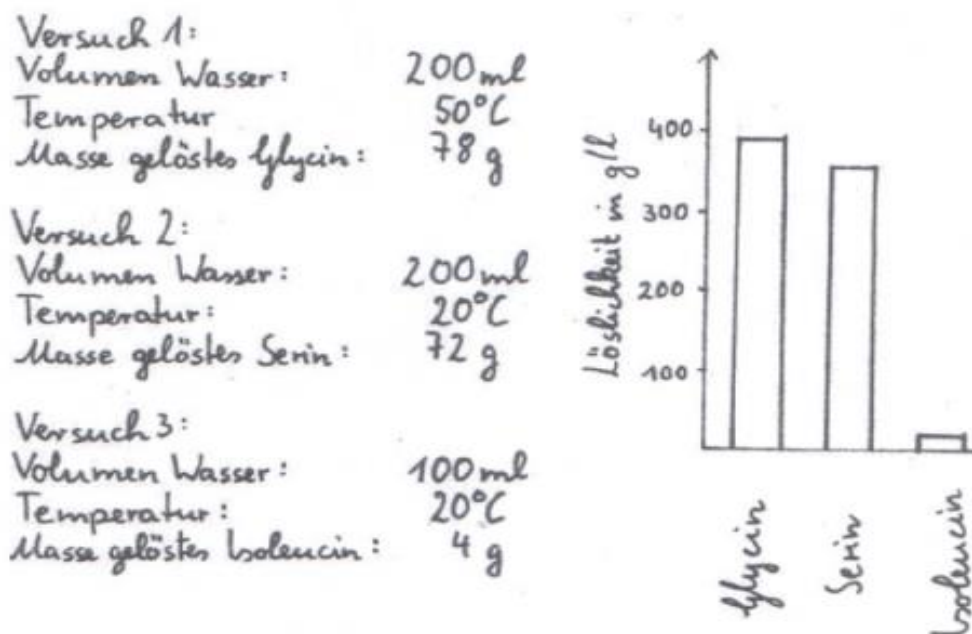 Versuch 1:
Volumen Wasser: 200 ml
Temperatur 50°C
Masse gelöstes Glycin: 78 g
Versuch 2:
Volumen Wasser: 200 ml
Temperatur: 20°C
Masse gelöstes Serin: 72 g
Versuch 3:
Volumen Wasser: 100 ml
Temperatur: 20°C
Masse gelöstes Isoleucin: 4 g
Löslichkeit in g/l
400
300
200
100
Glycin
Serin
Isoleucin